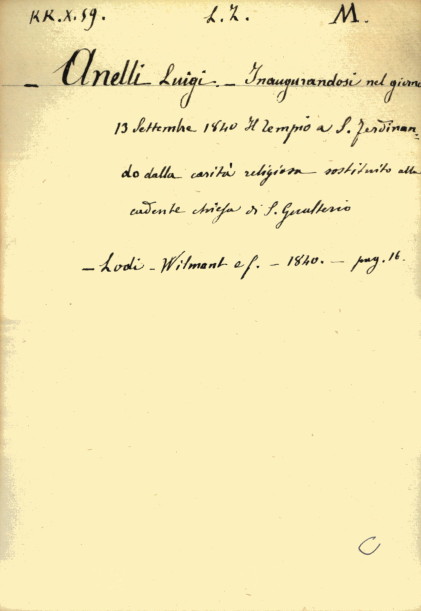 KK.X.59. L.Z. M.
— Anelli Luigi. — Inaugurandosi nel giorno
13 Settembre 1840 Il Tempio a S. Ferdinan-
do dalla carità religiosa sostituito alla
cadente chiesa di S. Gualterio
— Lodi — Wilmant e f. — 1840. — pag. 16.
C